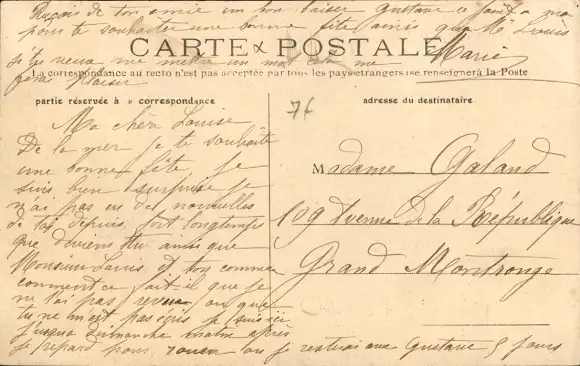 Reçois de ton amie un bon baiser Gustave se joint a moi
pour te souhaiter une bonne fête ainsi que Mr Louis
CARTE POSTALE
si tu veux me mettre un mot cela me
fera plaisir
Marie
La correspondance au recto n'est pas acceptée par tous les pays étrangers (se renseigner à la Poste
partie réservée à la correspondance
adresse du destinataire
76
Ma chère Louise
De la mer je te souhaite
une bonne fête je
suis bien surprise je
n'ai pas eu de nouvelles
de toi depuis fort longtemps
que deviens tu ainsi que
Monsieur Louis et ton
comment ce fait il que je
ne t'ai pas revue ou que
tu ne m'est pas écris je suis ici
jusqua dimanche matin après
je repard pour rouen ou je resterai avec Gustave 5 jours
Madame Galand
109 Avenue de la République
Grand Montrouge